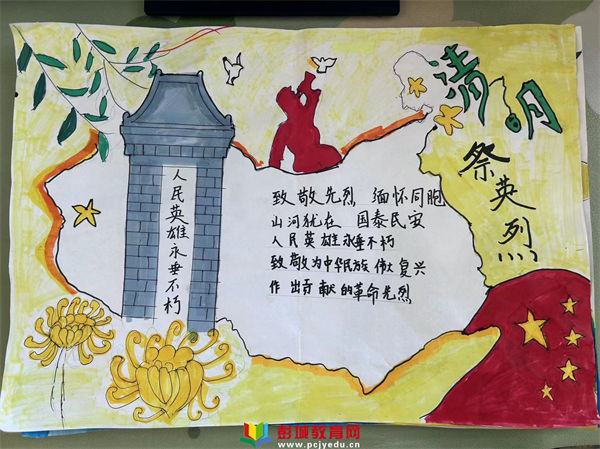 清明
祭英烈
人民英雄永垂不朽
致敬先烈 缅怀同胞
山河犹在 国泰民安
人民英雄永垂不朽
致敬为中华民族伟大复兴
作出贡献的革命先烈
彭城教育网
www.pcjyedu.cn